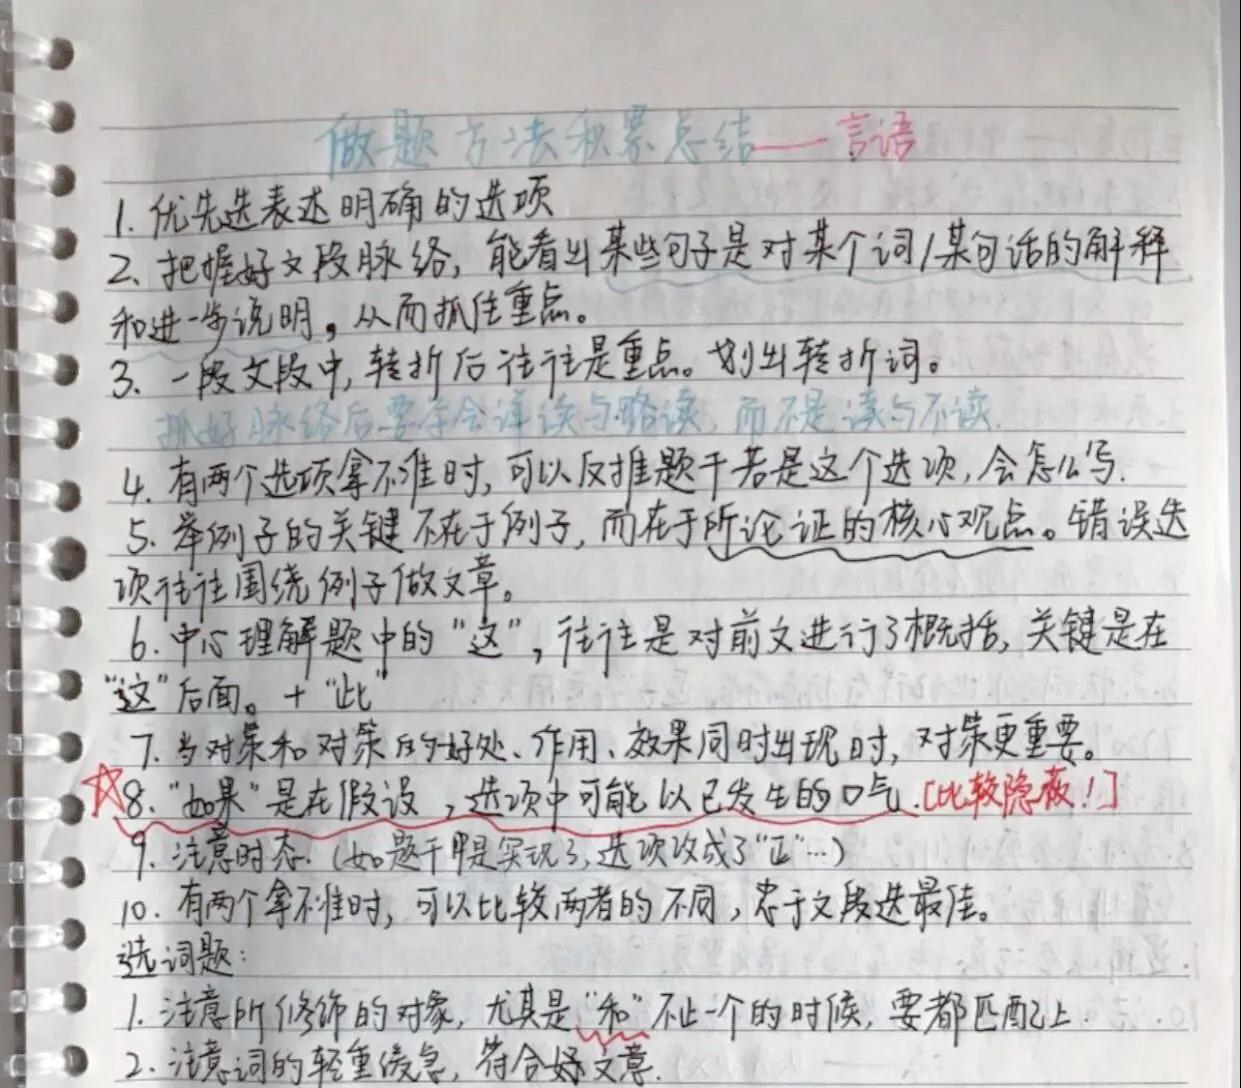 做题方法积累总结——言语
1. 优先选表述明确的选项
2. 把握好文段脉络，能看出某些句子是对某个词/某句话的解释
和进一步说明，从而抓住重点。
3. 一段文段中，转折后往往是重点。划出转折词。
抓好脉络后要学会详读与略读，而不是读与不读.
4. 有两个选项拿不准时，可以反推题干若是这个选项，会怎么写.
5. 举例子的关键不在于例子，而在于所论证的核心观点。错误选
项往往围绕例子做文章。
6. 中心理解题中的“这”，往往是对前文进行了概括，关键是在
“这”后面。+“此”
7. 当对策和对策的好处、作用、效果同时出现时，对策更重要。
☆8. “如果”是在假设，选项中可能以已发生的口气.[比较隐蔽！]
9. 注意时态.（如题干中是实现了，选项改成了“正”…）
10. 有两个拿不准时，可以比较两者的不同，忠于文段选最佳。
选词题：
1. 注意所修饰的对象，尤其是“和”不止一个的时候，要都匹配上.
2. 注意词的轻重缓急，符合好文意.